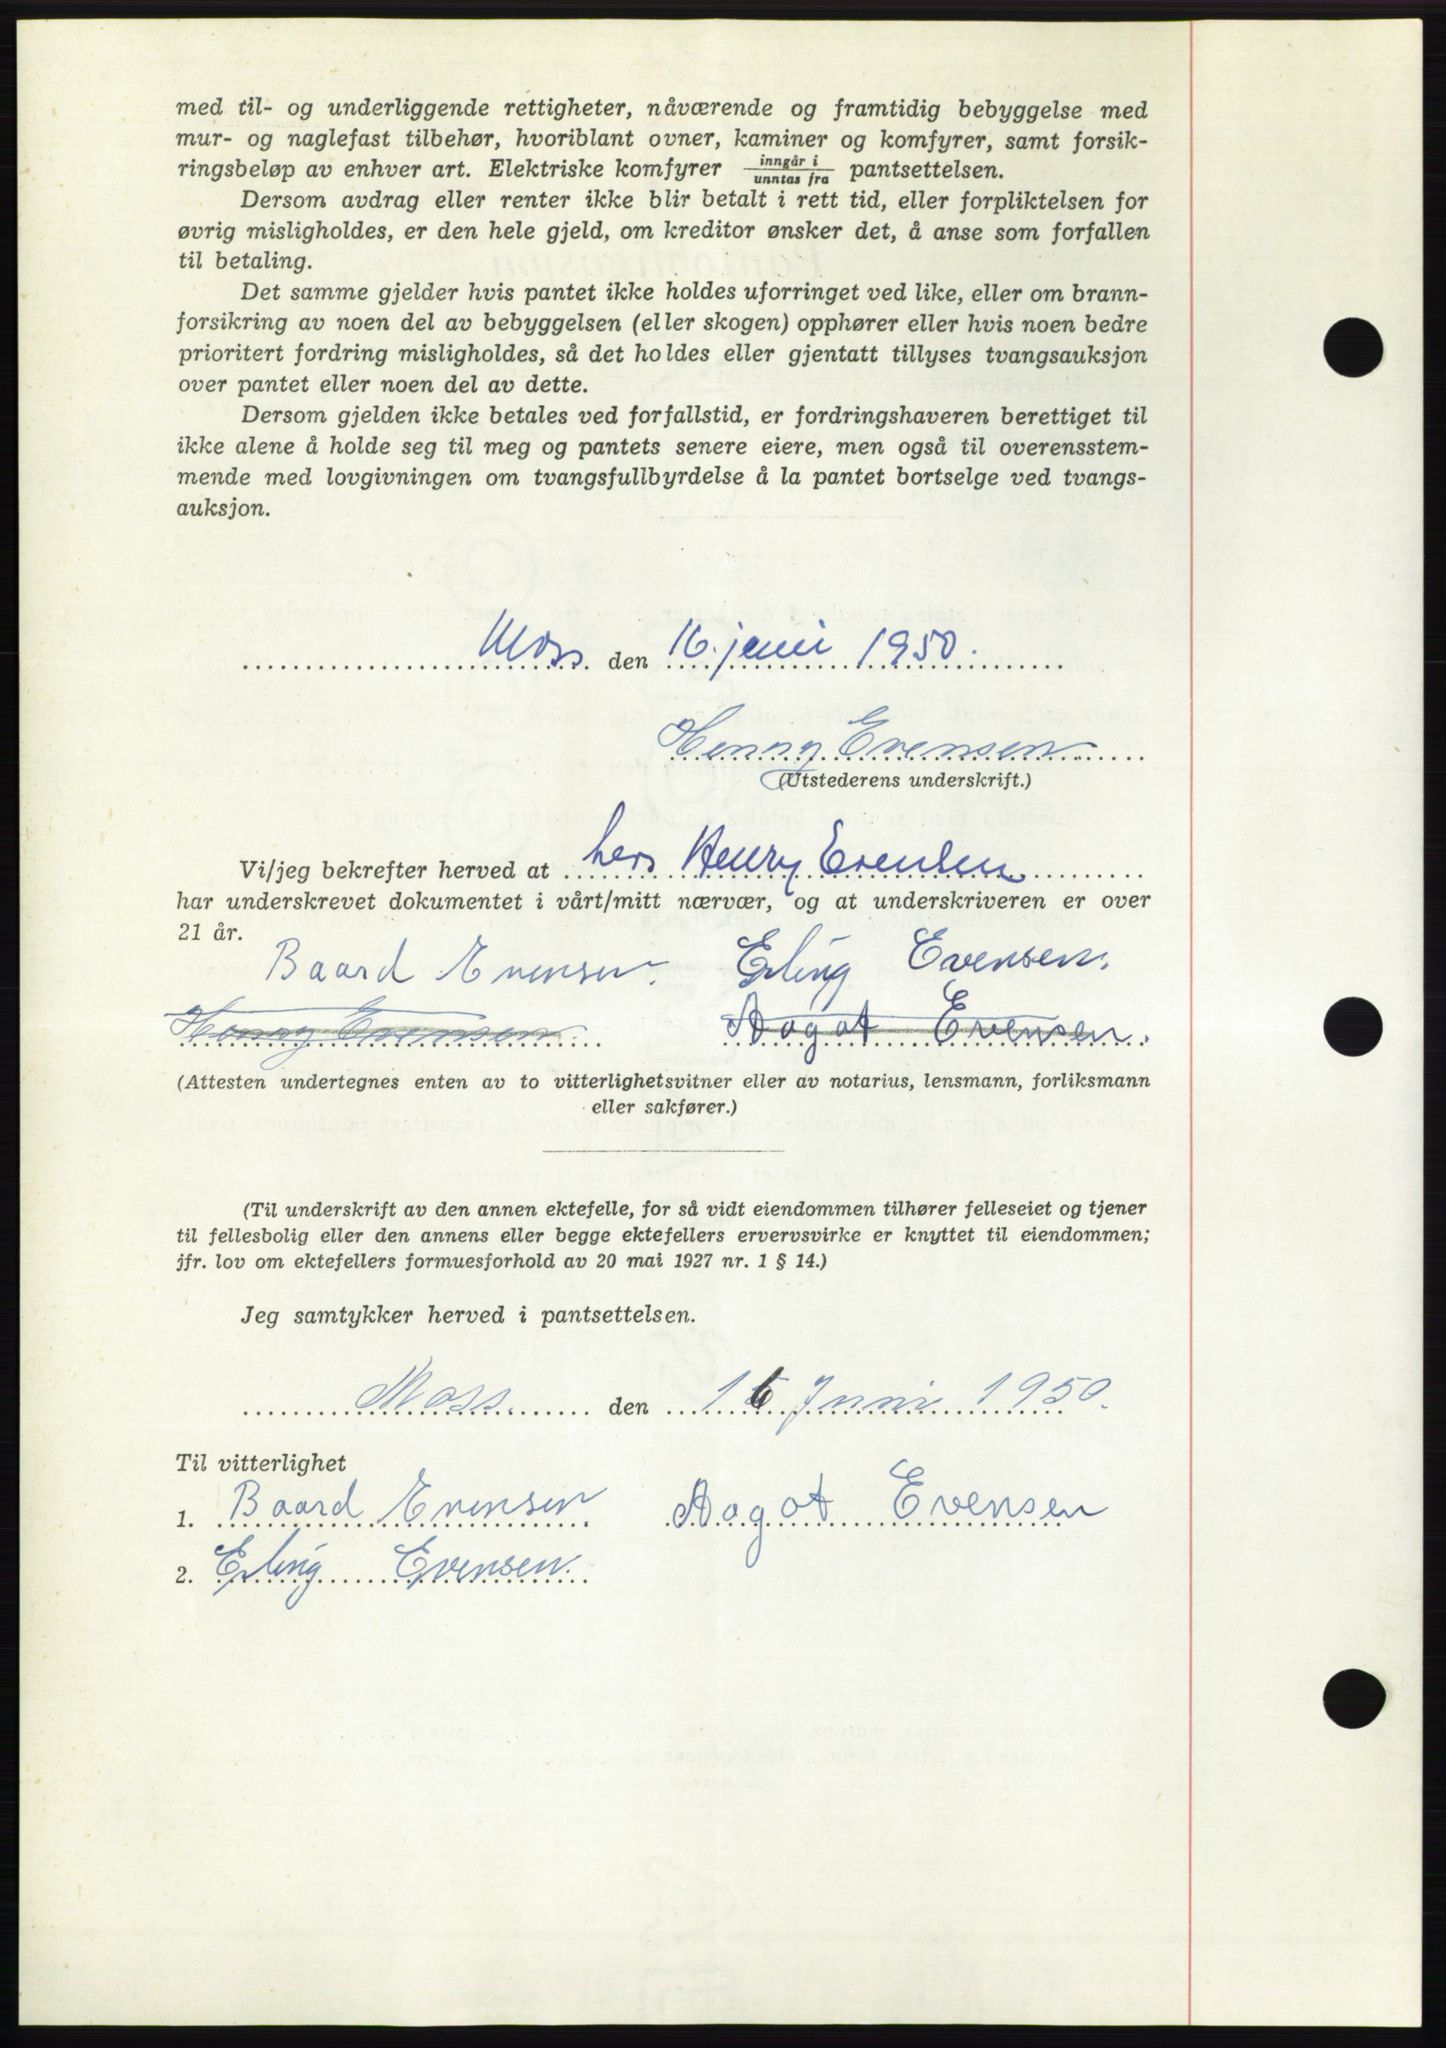 med til- og underliggende rettigheter, nåværende og framtidig bebyggelse med
mur- og naglefast tilbehør, hvoriblant ovner, kaminer og komfyrer, samt forsik-
ringsbeløp av enhver art. Elektriske komfyrer inngår i / unntas fra pantsettelsen.
Dersom avdrag eller renter ikke blir betalt i rett tid, eller forpliktelsen for
øvrig misligholdes, er den hele gjeld, om kreditor ønsker det, å anse som forfallen
til betaling.
Det samme gjelder hvis pantet ikke holdes uforringet ved like, eller om brann-
forsikring av noen del av bebyggelsen (eller skogen) opphører eller hvis noen bedre
prioritert fordring misligholdes, så det holdes eller gjentatt tillyses tvangsauksjon
over pantet eller noen del av dette.
Dersom gjelden ikke betales ved forfallstid, er fordringshaveren berettiget til
ikke alene å holde seg til meg og pantets senere eiere, men også til overensstem-
mende med lovgivningen om tvangsfullbyrdelse å la pantet bortselge ved tvangs-
auksjon.
Moss den 16. juni 1950.
Henry Evensen
(Utstederens underskrift.)
Vi/jeg bekrefter herved at herr Henry Evensen
har underskrevet dokumentet i vårt/mitt nærvær, og at underskriveren er over
21 år.
Baard Evensen. Erling Evensen.
Henry Evensen. Aagot Evensen.
(Attesten undertegnes enten av to vitterlighetsvitner eller av notarius, lensmann, forliksmann
eller sakfører.)
(Til underskrift av den annen ektefelle, for så vidt eiendommen tilhører felleseiet og tjener
til fellesbolig eller den annens eller begge ektefellers ervervsvirke er knyttet til eiendommen;
jfr. lov om ektefellers formuesforhold av 20 mai 1927 nr. 1 § 14.)
Jeg samtykker herved i pantsettelsen.
Moss. den 16 Juni 1950.
Til vitterlighet
1. Baard Evensen Aagot Evensen
2. Erling Evensen.